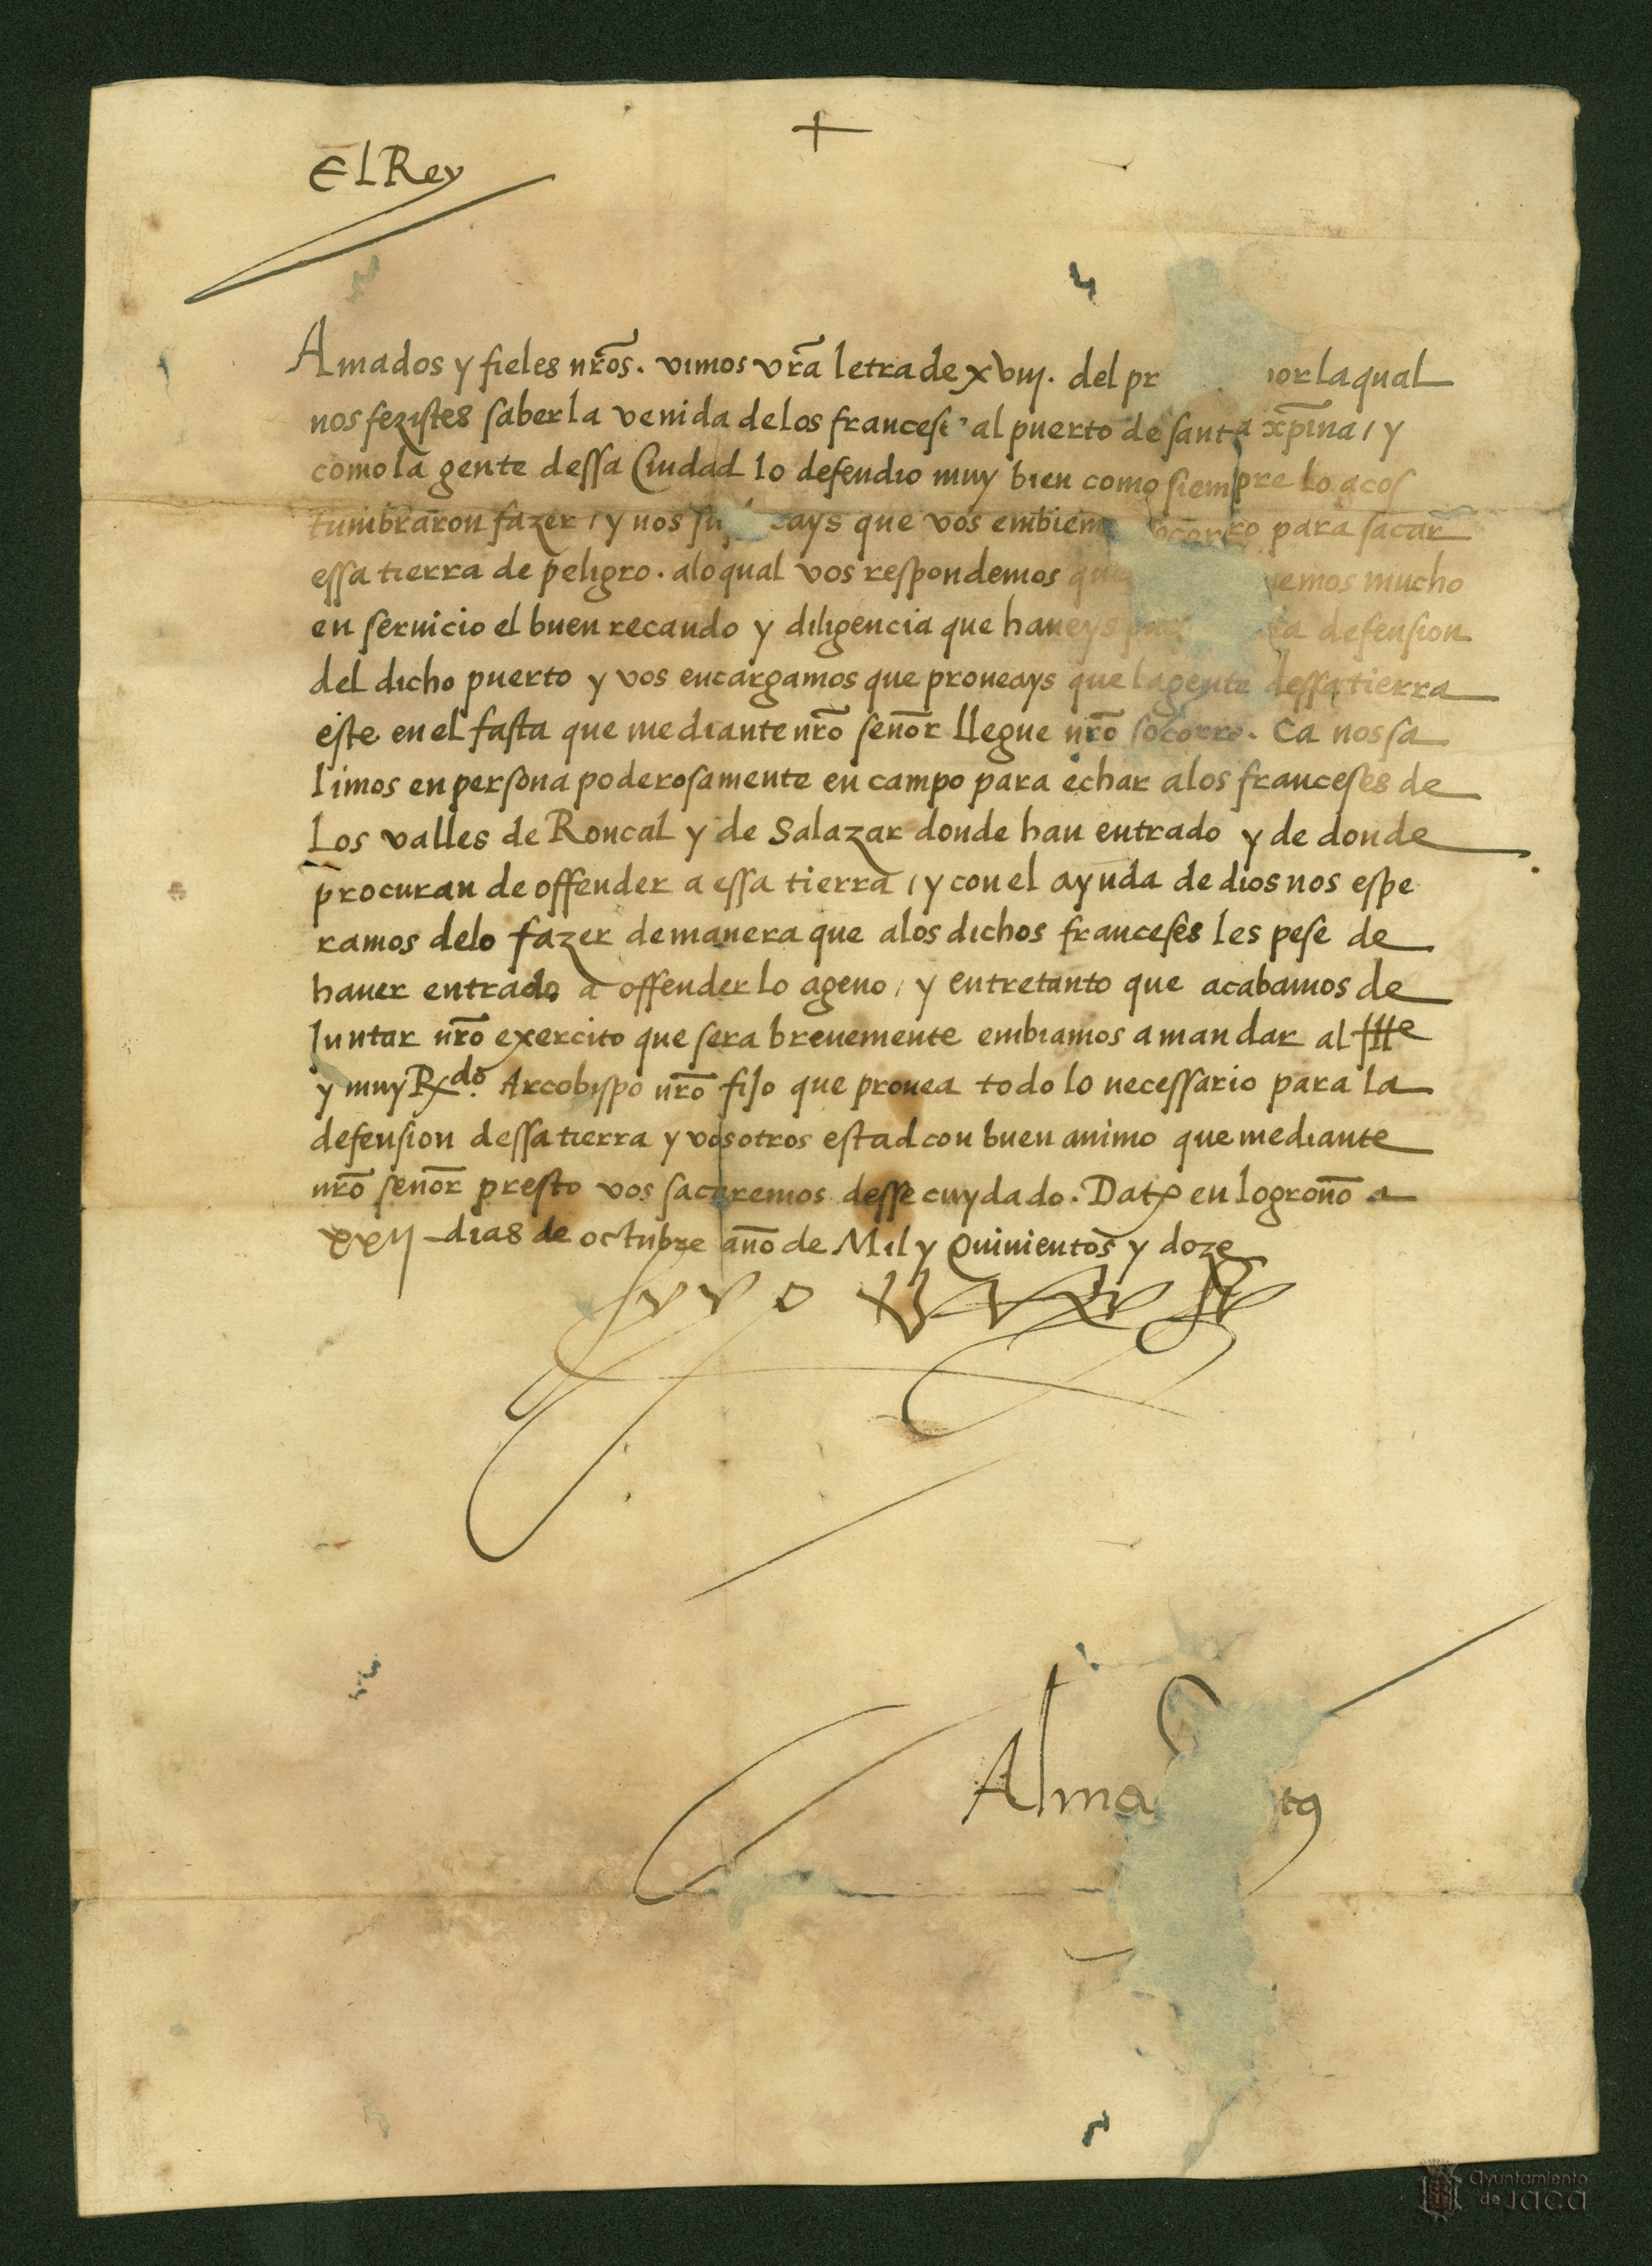 +
El Rey
Amados y fieles nr̃os. vimos vr̃a letra de xviij. del pr por la qual
nos fezistes saber la venida de los franceses al puerto de santa xp̃ina / y
como la gente dessa Ciudad lo defendio muy bien como siempre lo acos
tumbraron fazer / y nos que vos embiemos socorro para sacar
essa tierra de peligro. alo qual vos respondemos que mucho
en seruicio el buen recaudo y diligencia que haueys defension
del dicho puerto y vos encargamos que proueays que la gente dessa tierra
este en el fasta que mediante nr̃o señor llegue nr̃o socorro. Ca nos sa
limos en persona poderosamente en campo para echar alos franceses de
los valles de Roncal y de Salazar donde han entrado y de donde
procuran de offender a essa tierra / y con el ayuda de dios nos espe
ramos delo fazer de manera que alos dichos franceses les pese de
hauer entrado a offender lo ageno / y entretanto que acabamos de
Iuntar nr̃o exercito que sera breuemente embiamos a mandar al Ille
y muy Rdo. Arcobispo nr̃o fijo que prouea todo lo necessario para la
defension dessa tierra y vosotros estad con buen animo que mediante
nr̃o señor presto vos sacaremos desse cuydado. Dat en logroño a
xxij dias de octubre año de Mil y Quinientos y doze
yo el Rey
Alma
Ayuntamiento
de Jaca